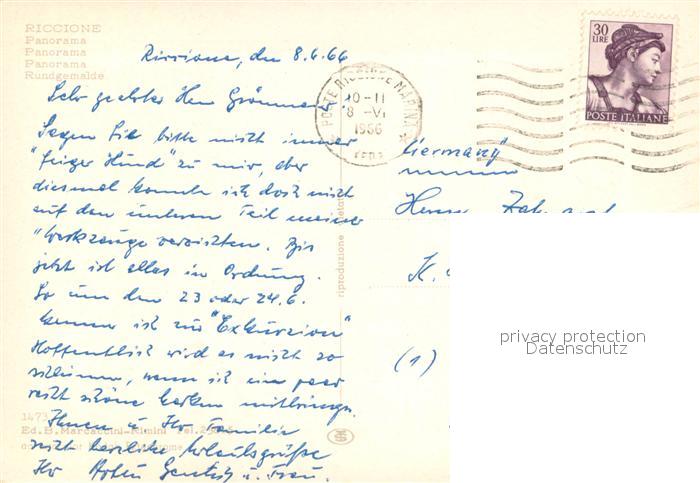 RICCIONE
Panorama
Panorama
Panorama
Rundgemälde
Riccione, den 8.6.66
Sehr geehrter Herr
Sagen Sie bitte nicht immer
"feiger Hund" zu mir, aber
diesmal konnte ich doch nicht
auf den unteren Teil meiner
"Werkzeuge verzichten. Bis
jetzt ist alles in Ordnung.
So um den 23 oder 24.6.
komme ich zur "Exkursion"
Hoffentlich wird es nicht so
schlimm, wenn ich ein paar
recht schöne Karten mitbringe.
Ihnen u. Ihr Familie
recht herzliche Urlaubsgrüße
Ihr u. Frau.
1473
Ed. B. Marcaccini-Rimini Tel.
riproduzione vietata
POSTE RICCIONE MARINA
10-11
8 -VI
1966
30
LIRE
POSTE ITALIANE
Germany
Herrn
K.
(1)
privacy protection
Datenschutz